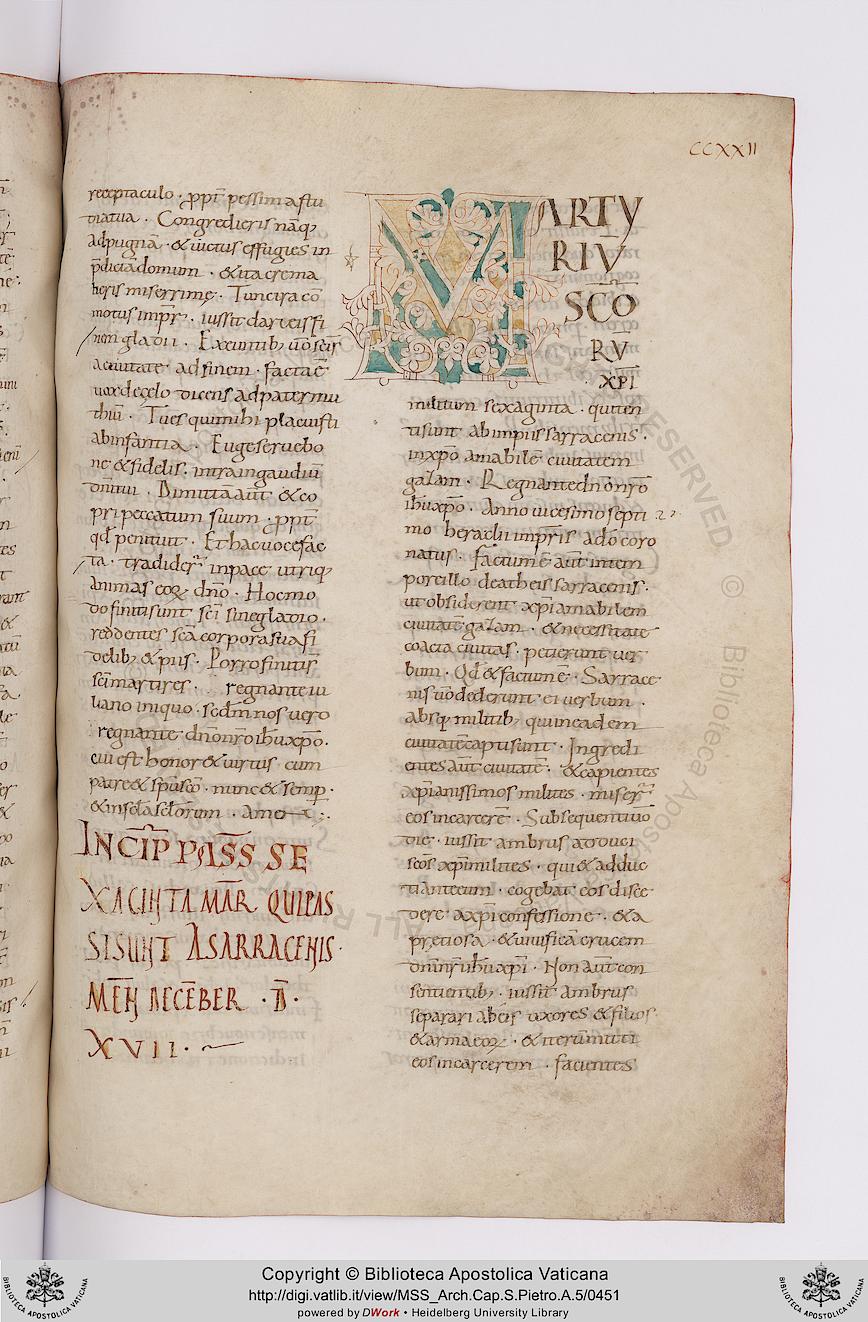 CCXXII
receptaculo · ꝓpt̄ pessim astu
tiatua · Congredieris nāq;
adpugnā · & uictus effugies in
p̄dictā domum · & ita crema
ueris miserrime · Tunc ira cō
motus imp̄r · iussit dari eis fi
nem gladii · Exeuntib; ū̄o sc̄is
aciuitate · ad finem · facta ē
uox decęlo dicens ad patermu
thiū · Tu es qui mihi placuisti
ab infantia · Euge serue bo
ne & fidelis · intra in gaudiū
dn̄i tui · Dimittā aūt & co
pri peccatum suum · ꝓpt̄
qd̄ penituit · Et hac uoce fac
ta · tradider̄ in pace utriq;
animas eoꝝ dn̄o · Hoc mo
do finiti sunt sc̄i sine gladio ·
reddentes sc̄a corpora sua fi
delib; & piis · Porro finiti s̄
sc̄i martires · regnante iu
liano iniquo · scdm̄ nos uero
regnante dn̄o nr̄o ihū xp̄o ·
cui est honor & uirtus cum
patre & sp̄u sc̄o · nunc & semp̄ ·
& in scl̄a scl̄orum · amen
INCIP̄ PASS̄ SE
XAGINTA MAR̄ QUI PAS
SI SUNT A SARRACENIS ·
MEN̄ DECĒBER · D̄ ·
XVII ·
MARTY
RIŪ
SC̄O
RV̄
XP̄I
militum sexaginta · qui ten
ti sunt ab impiis sarracenis ·
in xp̄o amabilē ciuitatem
gazam · Regnante dn̄o nr̄o
ihū xp̄o · Anno uicesimo septi
mo heraclii imp̄ris a dō coro
natus · factum ē aūt in tem
porc illo de atheis sarracenis ·
ut obsiderent xp̄i amabilem
ciuitatē gazam · & necessitate
coacta ciuitas · petierunt uer
bum · Qd̄ & factum ē · Sarrace
nis ū̄o dederunt ei uerbum ·
absq; militib; qui in eadem
ciuitatē capti sunt · Ingredi
entes aūt ciuitatē · & capientes
xp̄ianissimos milites · miser̄
eos in carcerē · Subsequenti ū̄o
die · iussit ambrus adduci
sc̄os xp̄i milites · qui & adduc
ti ante eum · cogebat eos disce
dere a xp̄i confessione · & a
pretiosa · & uiuificā crucem
dn̄i nr̄i ihū xp̄i · Non aūt con
sentientib; · iussit ambrus
separari ab eis uxores & filios
& arma eoꝝ · & iterū mitti
eos in carcerem · facientes
Copyright © Biblioteca Apostolica Vaticana
http://digi.vatlib.it/view/MSS_Arch.Cap.S.Pietro.A.5/0451
powered by DWork • Heidelberg University Library